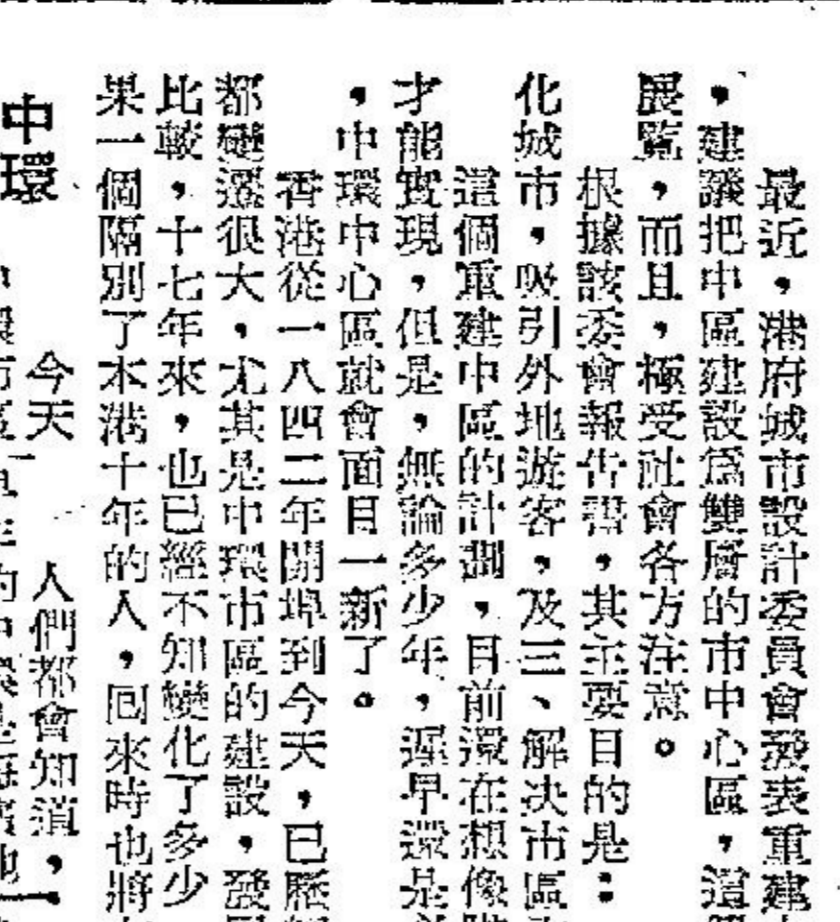 最近，港府城市設計委員會發表重建
，建議把中區建設爲雙層的市中心區，這
展覽，而且，極受社會各方注意。
根據該委會報告書，其主要目的是：
化城市，吸引外地遊客，及三、解决市區
這個重建中區的計劃，目前還在想像
才能實現，但是，無論多少年，遲早還是
，中環中心區就會面目一新了。
香港從一八四二年開埠到今天，已歷
都變遷很大，尤其是中環市區的建設，發
比較，十七年來，也已經不知變化了多少
果一個隔別了本港十年的人，回來時也將
中環
今天 人們都會知道，